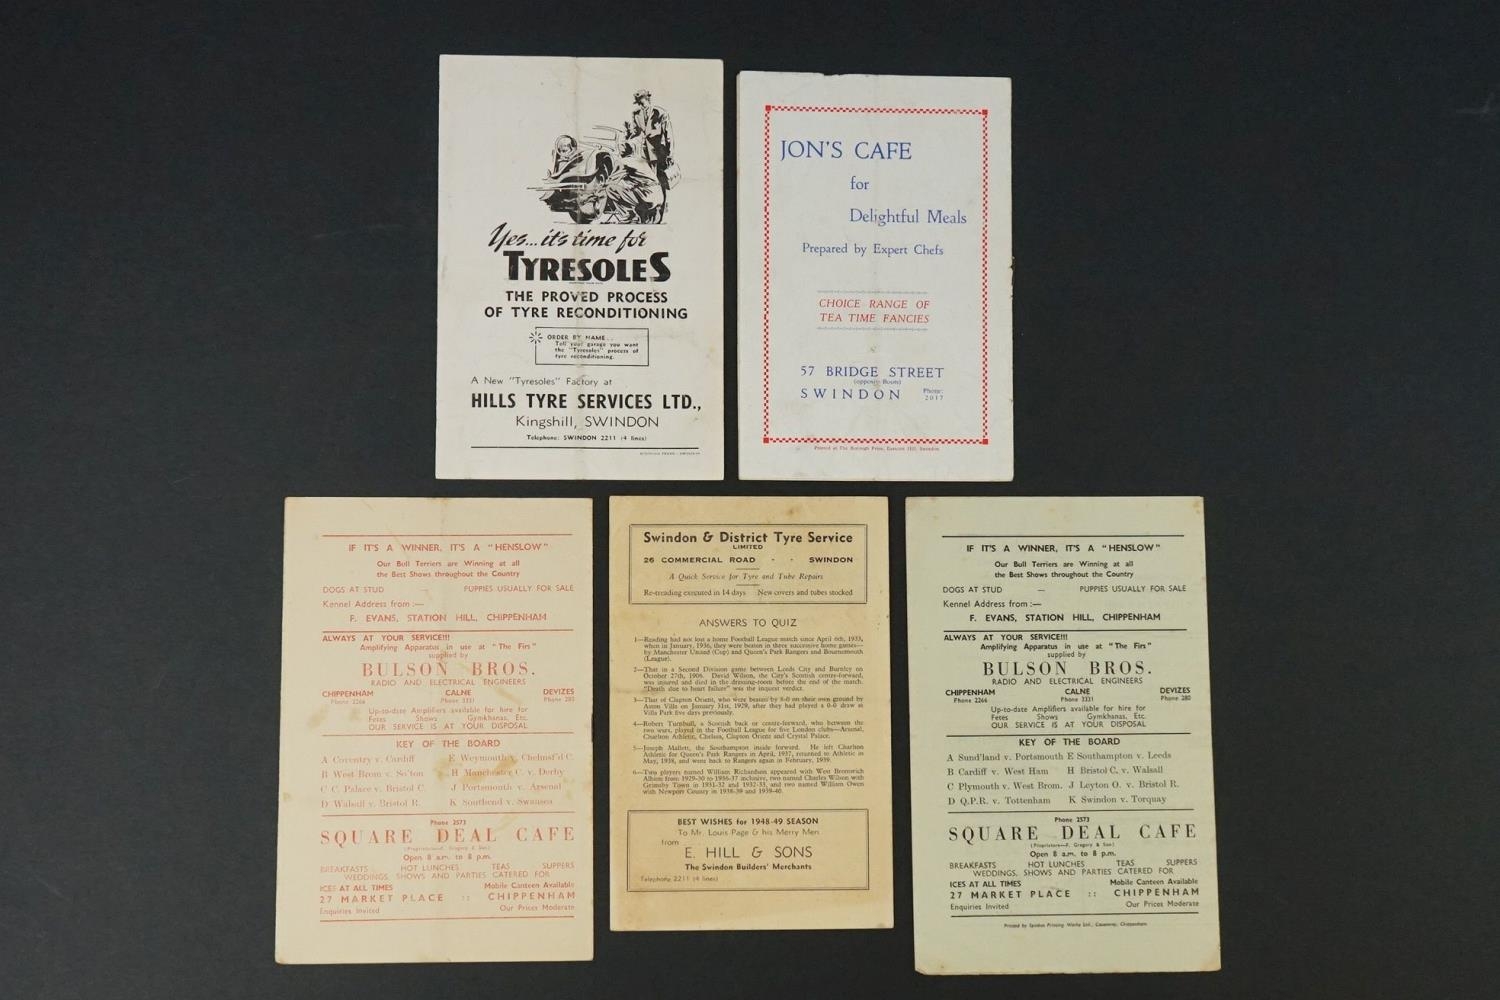 Yes... it's time for
TYRESOLES
THE PROVED PROCESS
OF TYRE RECONDITIONING
ORDER BY NAME . .
Tell your garage you want
the "Tyresoles" process of
tyre reconditioning.
A New "Tyresoles" Factory at
HILLS TYRE SERVICES LTD.,
Kingshill, SWINDON
Telephone: SWINDON 2211 (4 lines)
JON'S CAFE
for
Delightful Meals
Prepared by Expert Chefs
CHOICE RANGE OF
TEA TIME FANCIES
57 BRIDGE STREET
(opposite Boots)
SWINDON Phone: 2017
Printed at The Borough Press, Eastcott Hill, Swindon
IF IT'S A WINNER, IT'S A "HENSLOW"
Our Bull Terriers are Winning at all
the Best Shows throughout the Country
DOGS AT STUD — PUPPIES USUALLY FOR SALE
Kennel Address from :—
F. EVANS, STATION HILL, CHIPPENHAM
ALWAYS AT YOUR SERVICE!!!
Amplifying Apparatus in use at "The Firs"
supplied by
BULSON BROS.
RADIO AND ELECTRICAL ENGINEERS
CHIPPENHAM CALNE DEVIZES
Phone 2266 Phone 3331 Phone 280
Up-to-date Amplifiers available for hire for
Fetes Shows Gymkhanas, Etc.
OUR SERVICE IS AT YOUR DISPOSAL
KEY OF THE BOARD
A Coventry v. Cardiff E Weymouth v. Chelmsf'd C.
B West Brom v. So'ton H Manchester C. v. Derby
C C. Palace v. Bristol C. J Portsmouth v. Arsenal
D Walsall v. Bristol R. K Southend v. Swansea
Phone 2573
SQUARE DEAL CAFE
(Proprietors—F. Gregory & Son)
Open 8 a.m. to 8 p.m.
BREAKFASTS HOT LUNCHES TEAS SUPPERS
WEDDINGS, SHOWS AND PARTIES CATERED FOR
ICES AT ALL TIMES Mobile Canteen Available
27 MARKET PLACE :: CHIPPENHAM
Enquiries Invited Our Prices Moderate
Swindon & District Tyre Service
LIMITED
26 COMMERCIAL ROAD - - SWINDON
A Quick Service for Tyre and Tube Repairs
Re-treading executed in 14 days New covers and tubes stocked
ANSWERS TO QUIZ
1—Reading had not lost a home Football League match since April 6th, 1933,
when in January, 1936, they were beaten in three successive home games—
by Manchester United (Cup) and Queen's Park Rangers and Bournemouth
(League).
2—That in a Second Division game between Leeds City and Burnley on
October 27th, 1906. David Wilson, the City's Scottish centre-forward,
was injured and died in the dressing-room before the end of the match.
"Death due to heart failure" was the inquest verdict.
3—That of Clapton Orient, who were beaten by 8-0 on their own ground by
Aston Villa on January 31st, 1929, after they had played a 0-0 draw at
Villa Park five days previously.
4—Robert Turnbull, a Scottish back or centre-forward, who between the
two wars, played in the Football League for five London clubs—Arsenal,
Charlton Athletic, Chelsea, Clapton Orient and Crystal Palace.
5—Joseph Mallett, the Southampton inside forward. He left Charlton
Athletic for Queen's Park Rangers in April, 1937, returned to Athletic in
May, 1938, and went back to Rangers again in February, 1939.
6—Two players named William Richardson appeared with West Bromwich
Albion from 1929-30 to 1936-37 inclusive, two named Charles Wilson with
Grimsby Town in 1931-32 and 1932-33, and two named William Owen
with Newport County in 1938-39 and 1939-40.
BEST WISHES for 1948-49 SEASON
To Mr. Louis Page & his Merry Men
from
E. HILL & SONS
The Swindon Builders' Merchants
Telephone 2211 (4 lines)
IF IT'S A WINNER, IT'S A "HENSLOW"
Our Bull Terriers are Winning at all
the Best Shows throughout the Country
DOGS AT STUD — PUPPIES USUALLY FOR SALE
Kennel Address from :—
F. EVANS, STATION HILL, CHIPPENHAM
ALWAYS AT YOUR SERVICE!!!
Amplifying Apparatus in use at "The Firs"
supplied by
BULSON BROS.
RADIO AND ELECTRICAL ENGINEERS
CHIPPENHAM CALNE DEVIZES
Phone 2266 Phone 3331 Phone 280
Up-to-date Amplifiers available for hire for
Fetes Shows Gymkhanas, Etc.
OUR SERVICE IS AT YOUR DISPOSAL
KEY OF THE BOARD
A Sund'land v. Portsmouth E Southampton v. Leeds
B Cardiff v. West Ham H Bristol C. v. Walsall
C Plymouth v. West Brom. J Leyton O. v. Bristol R.
D Q.P.R. v. Tottenham K Swindon v. Torquay
Phone 2573
SQUARE DEAL CAFE
(Proprietors—F. Gregory & Son)
Open 8 a.m. to 8 p.m.
BREAKFASTS HOT LUNCHES TEAS SUPPERS
WEDDINGS, SHOWS AND PARTIES CATERED FOR
ICES AT ALL TIMES Mobile Canteen Available
27 MARKET PLACE :: CHIPPENHAM
Enquiries Invited Our Prices Moderate
Printed by Spinkes Printing Works Ltd., Causeway, Chippenham.